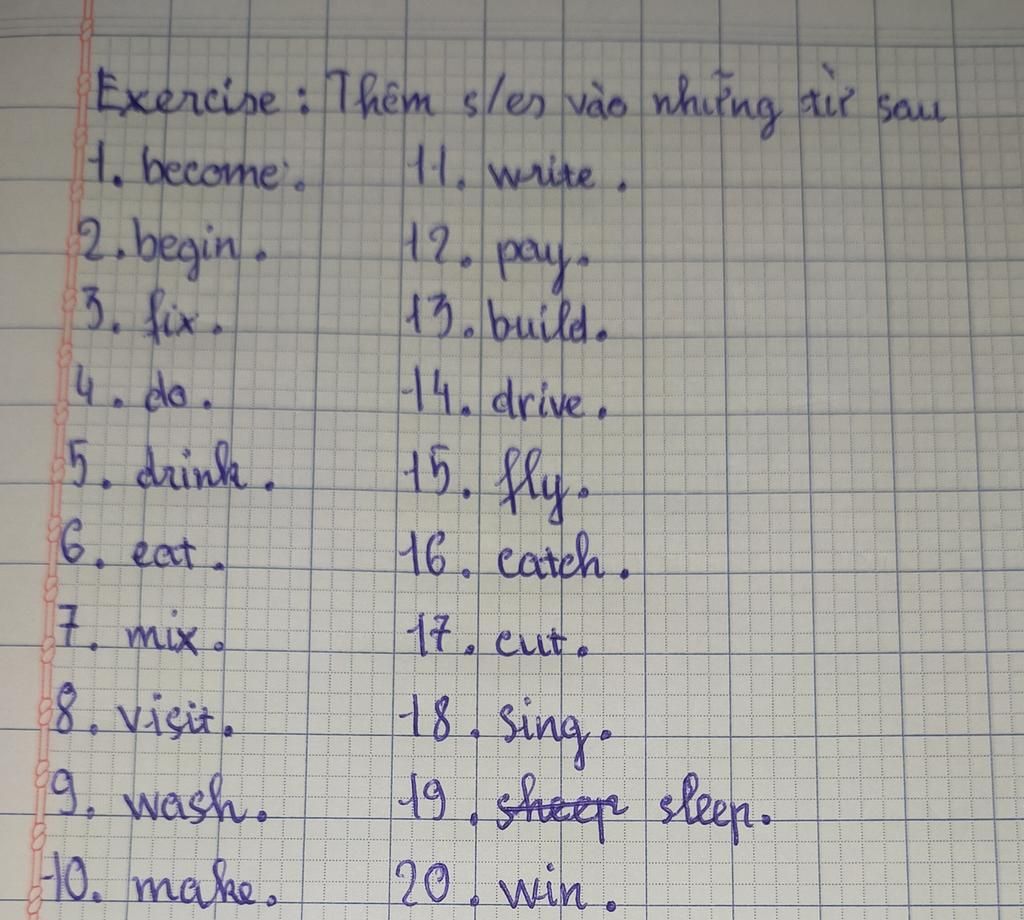 Exercise: Thêm s/es vào những từ sau
1. become. 11. write.
2. begin. 12. pay.
3. fix. 13. build.
4. do. 14. drive.
5. drink. 15. fly.
6. eat. 16. catch.
7. mix. 17. cut.
8. visit. 18. sing.
9. wash. 19. sheep sleep.
10. make. 20. win.